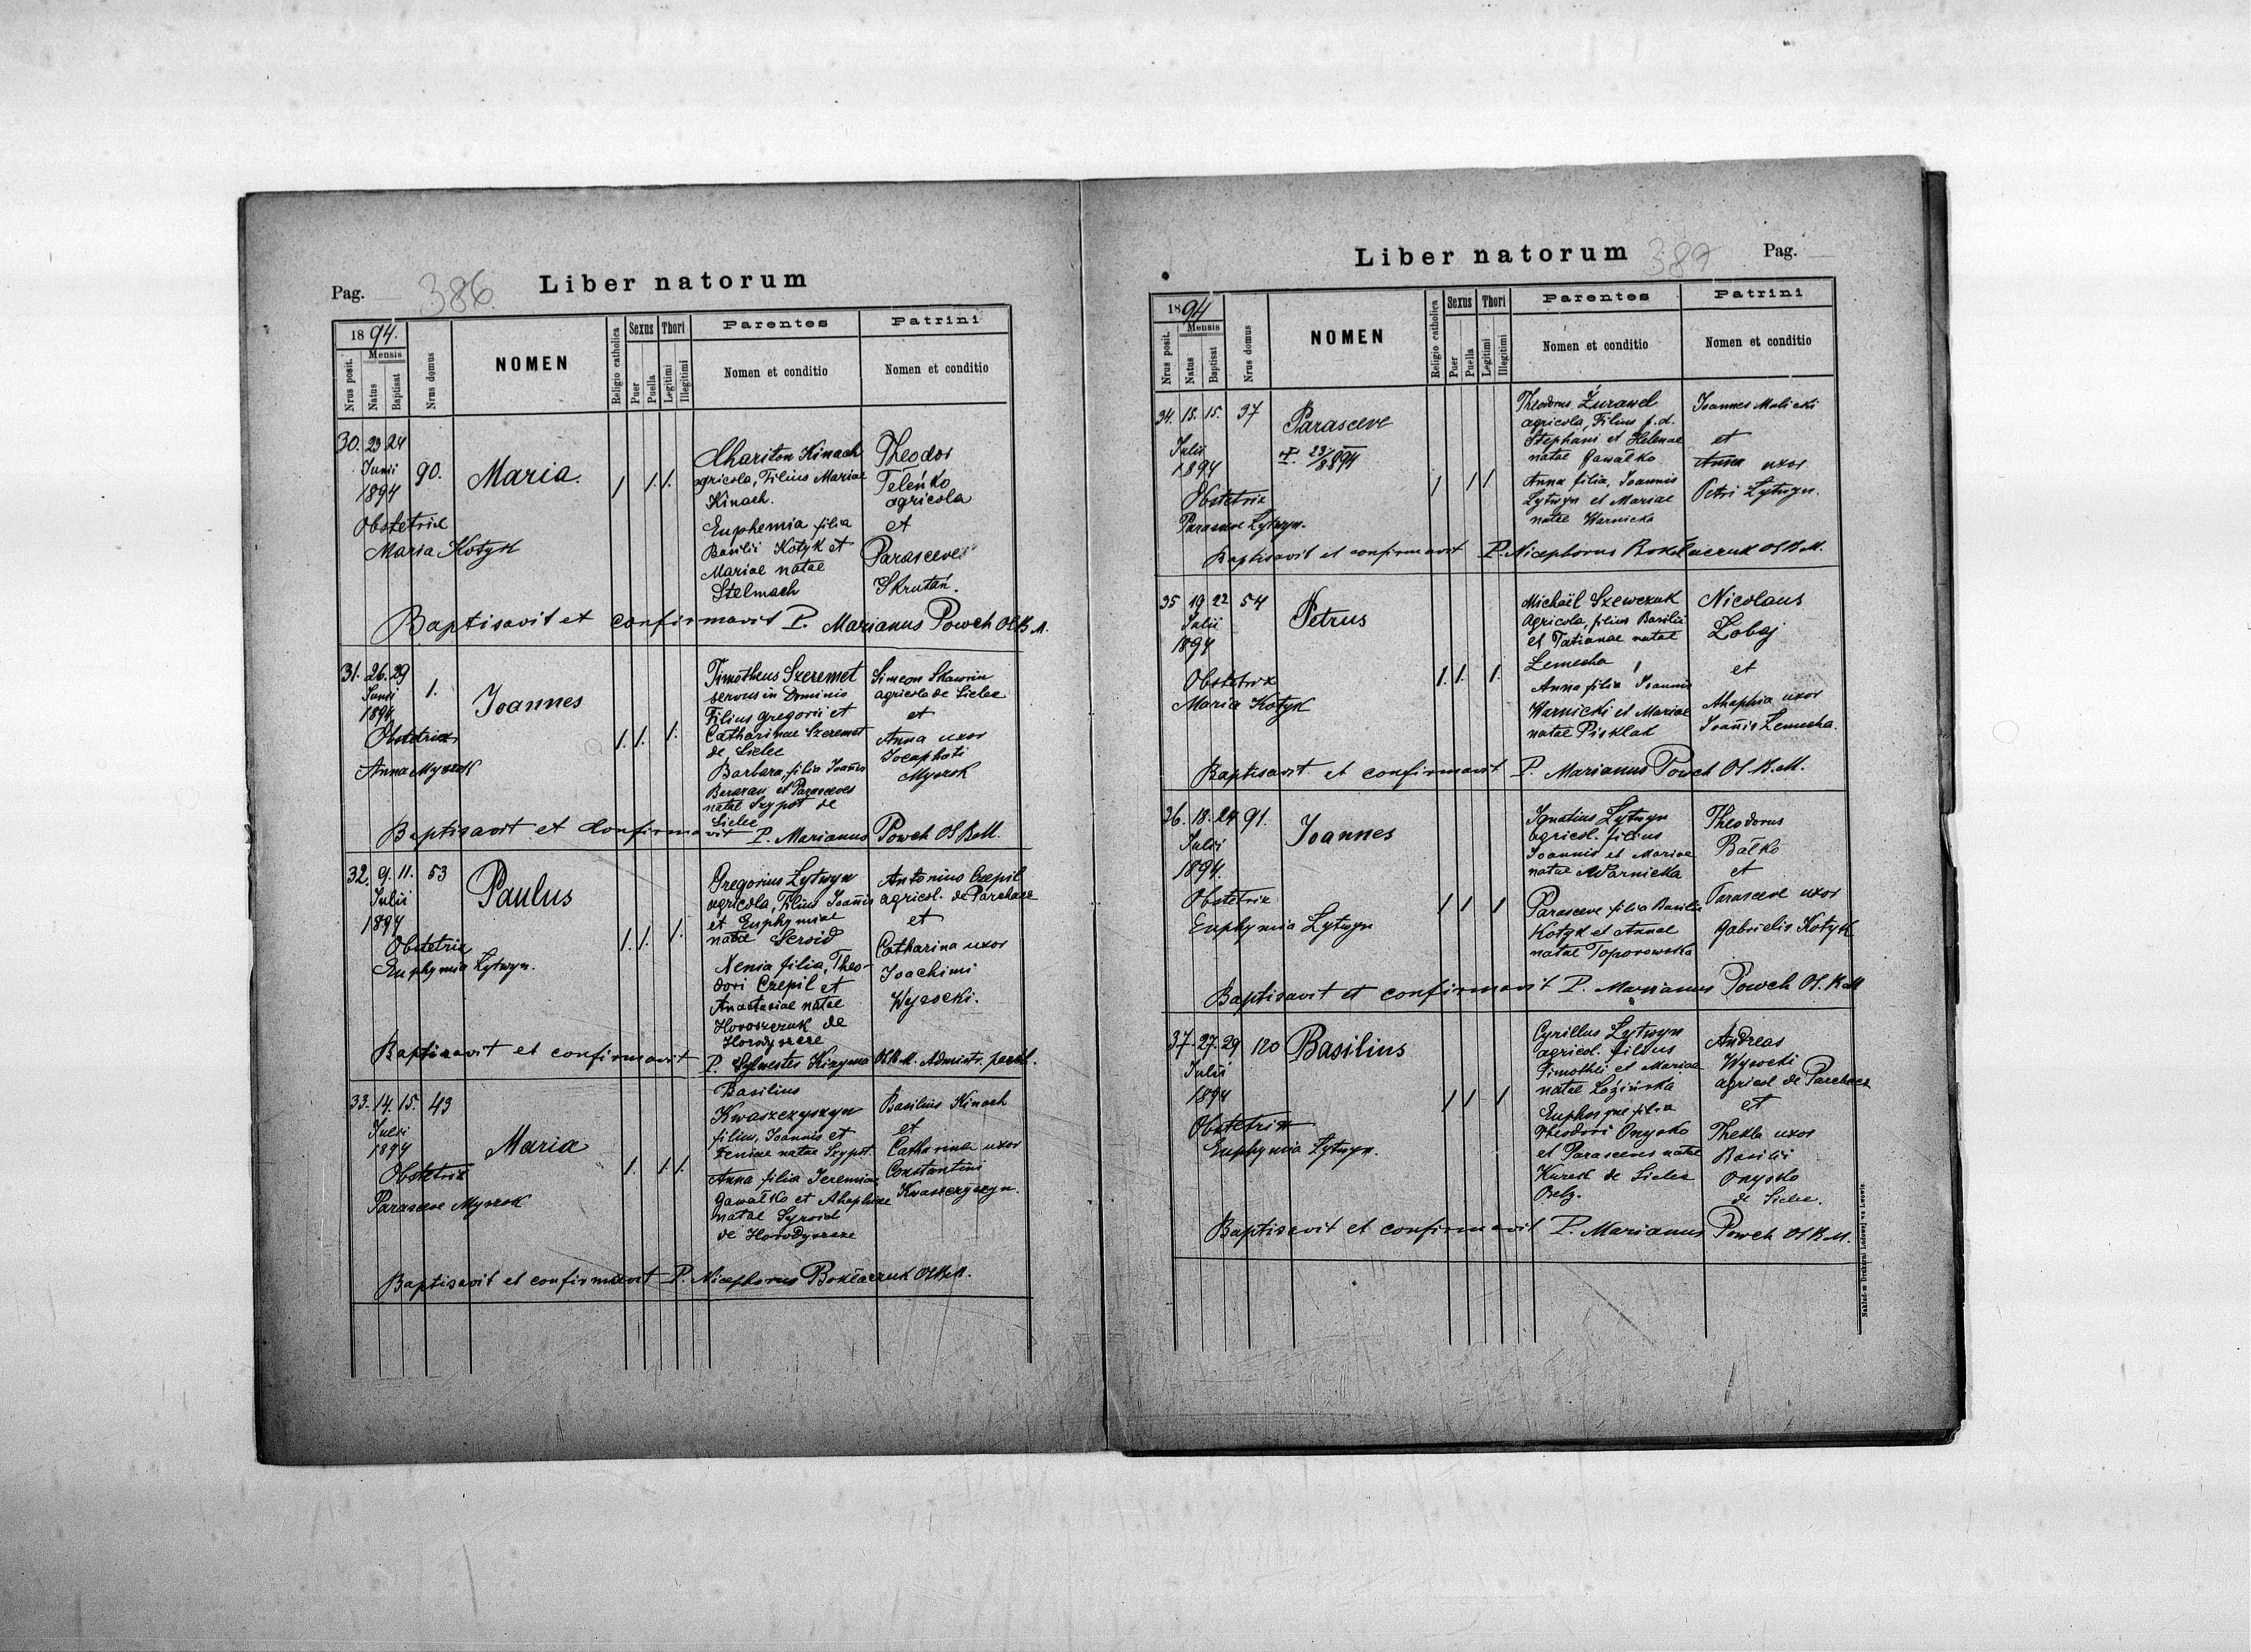 Pag. 386 Liber natorum
1894.
Nrus posit.
Mensis
Natus
Baptisat
Nrus domus
NOMEN
Religio catholica
Sexus
Puer
Puella
Thori
Legitimi
Illegitimi
Parentes
Nomen et conditio
Patrini
Nomen et conditio
30. 23 24
Junii
1894
90.
Maria.
1 1. 1.
Obstetrix
Maria Kotyk
Chariton Kinach
agricola, Filius Mariae
Kinach.
Euphemia filia
Basilii Kotyk et
Mariae natae
Stelmach
Theodor
Teleńko
agricola
et
Parasceve
Skrutań.
Baptisavit et confirmavit P. Marianus Powch OSBM.
31. 26. 29
Junii
1894
1.
Joannes
1. 1. 1.
Obstetrix
Anna Myszok
Timotheus Szeremet
servus in Dominio
Filius Gregorii et
Catharinae Szeremet
de Sielec
Barbara, filia Joannis
et Parasceves
natae Szypot de
Sielec
Simeon
agricola de Sielec
et
Anna uxor
Baptisavit et confirmavit P. Marianus Powch OSBM.
32. 9. 11. 53
Julii
1894
Paulus
1. 1. 1.
Obstetrix
Euphymia Lytwyn.
Gregorius Lytwyn
agricola, Filius Joannis
et Euphymiae
natae Seroid
Xenia filia, Theo-
dori Czepil et
Anastasiae natae
Horoszczuk de
Horodyszcze
Antonius Czepil
agricol. de Parchacz
et
Catharina uxor
Joachimi
Wysocki.
Baptisavit et confirmavit P. Sylvester Kizyma OSBM. Administr. paroch.
33. 14. 15. 43
Julii
1894
Maria
1. 1. 1.
Obstetrix
Parasceve Myszok
Basilius
Kwaszczyszyn
filius, Joannis et
Xeniae natae Szypot.
Anna filia Jeremiae
Gawałko et Ahaphiae
natae Syroid
de Horodyszcze
Basilius Kinach
et
Catharina uxor
Constantini
Kwaszczyszyn.
Baptisavit et confirmavit P. Nicephorus Bokłaczuk OSBM.
Liber natorum 387 Pag.
1894
Nrus posit.
Mensis
Natus
Baptisat
Nrus domus
NOMEN
Religio catholica
Sexus
Puer
Puella
Thori
Legitimi
Illegitimi
Parentes
Nomen et conditio
Patrini
Nomen et conditio
34. 15. 15. 37
Julii
1894
Parasceve
1 1 1
Obstetrix
Parasceve Lytwyn.
Theodorus Żurawel
agricola, Filius p.d.
Stephani et Helenae
natae Gawałko
Anna filia, Joannis
Lytwyn et Mariae
natae Warnicka
Joannes Malicki
et
Anna uxor
Petri Lytwyn.
Baptisavit et confirmavit P. Nicephorus Bokłaczuk OSBM.
35 19 22 54
Julii
1894
Petrus
1. 1. 1.
Obstetrix
Maria Kotyk
Michaël Szewczuk
Agricola, filius Basilii
et Tatianae natae
Zemecha
Anna filia Joannis
Warnicki et Mariae
natae Pisklak
Nicolaus
Zobaj
et
Ahaphia uxor
Joannis Zemecha.
Baptisavit et confirmavit P. Marianus Powch OSB.M.
36. 18. 24 91.
Julii
1894.
Joannes
1 1 1
Obstetrix
Euphymia Lytwyn
Ignatius Lytwyn
agricol. filius
Joannis et Mariae
natae Warnicka
Parasceve filia Basilii
Kotyk et Annae
natae Toporowska
Theodorus
Bałko
et
Parasceve uxor
Gabrielis Kotyk
Baptisavit et confirmavit P. Marianus Powch OS.BM
37. 27. 29 120
Julii
1894
Basilius
1 1 1
Obstetrix
Euphymia Lytwyn.
Cyrillus Lytwyn
agricol. filius
Timothei et Mariae
natae Łozińska
filia
Theodori Onysko
et Parasceves natae
Kurek de Sielec
Belz.
Andreas
Wysocki
agricol de Parchacz
et
Thekla uxor
Basilii
Onysko
de Sielec.
Baptisavit et confirmavit P. Marianus Powch OSBM.
Nakładem Drukarni Ludowej we Lwowie.